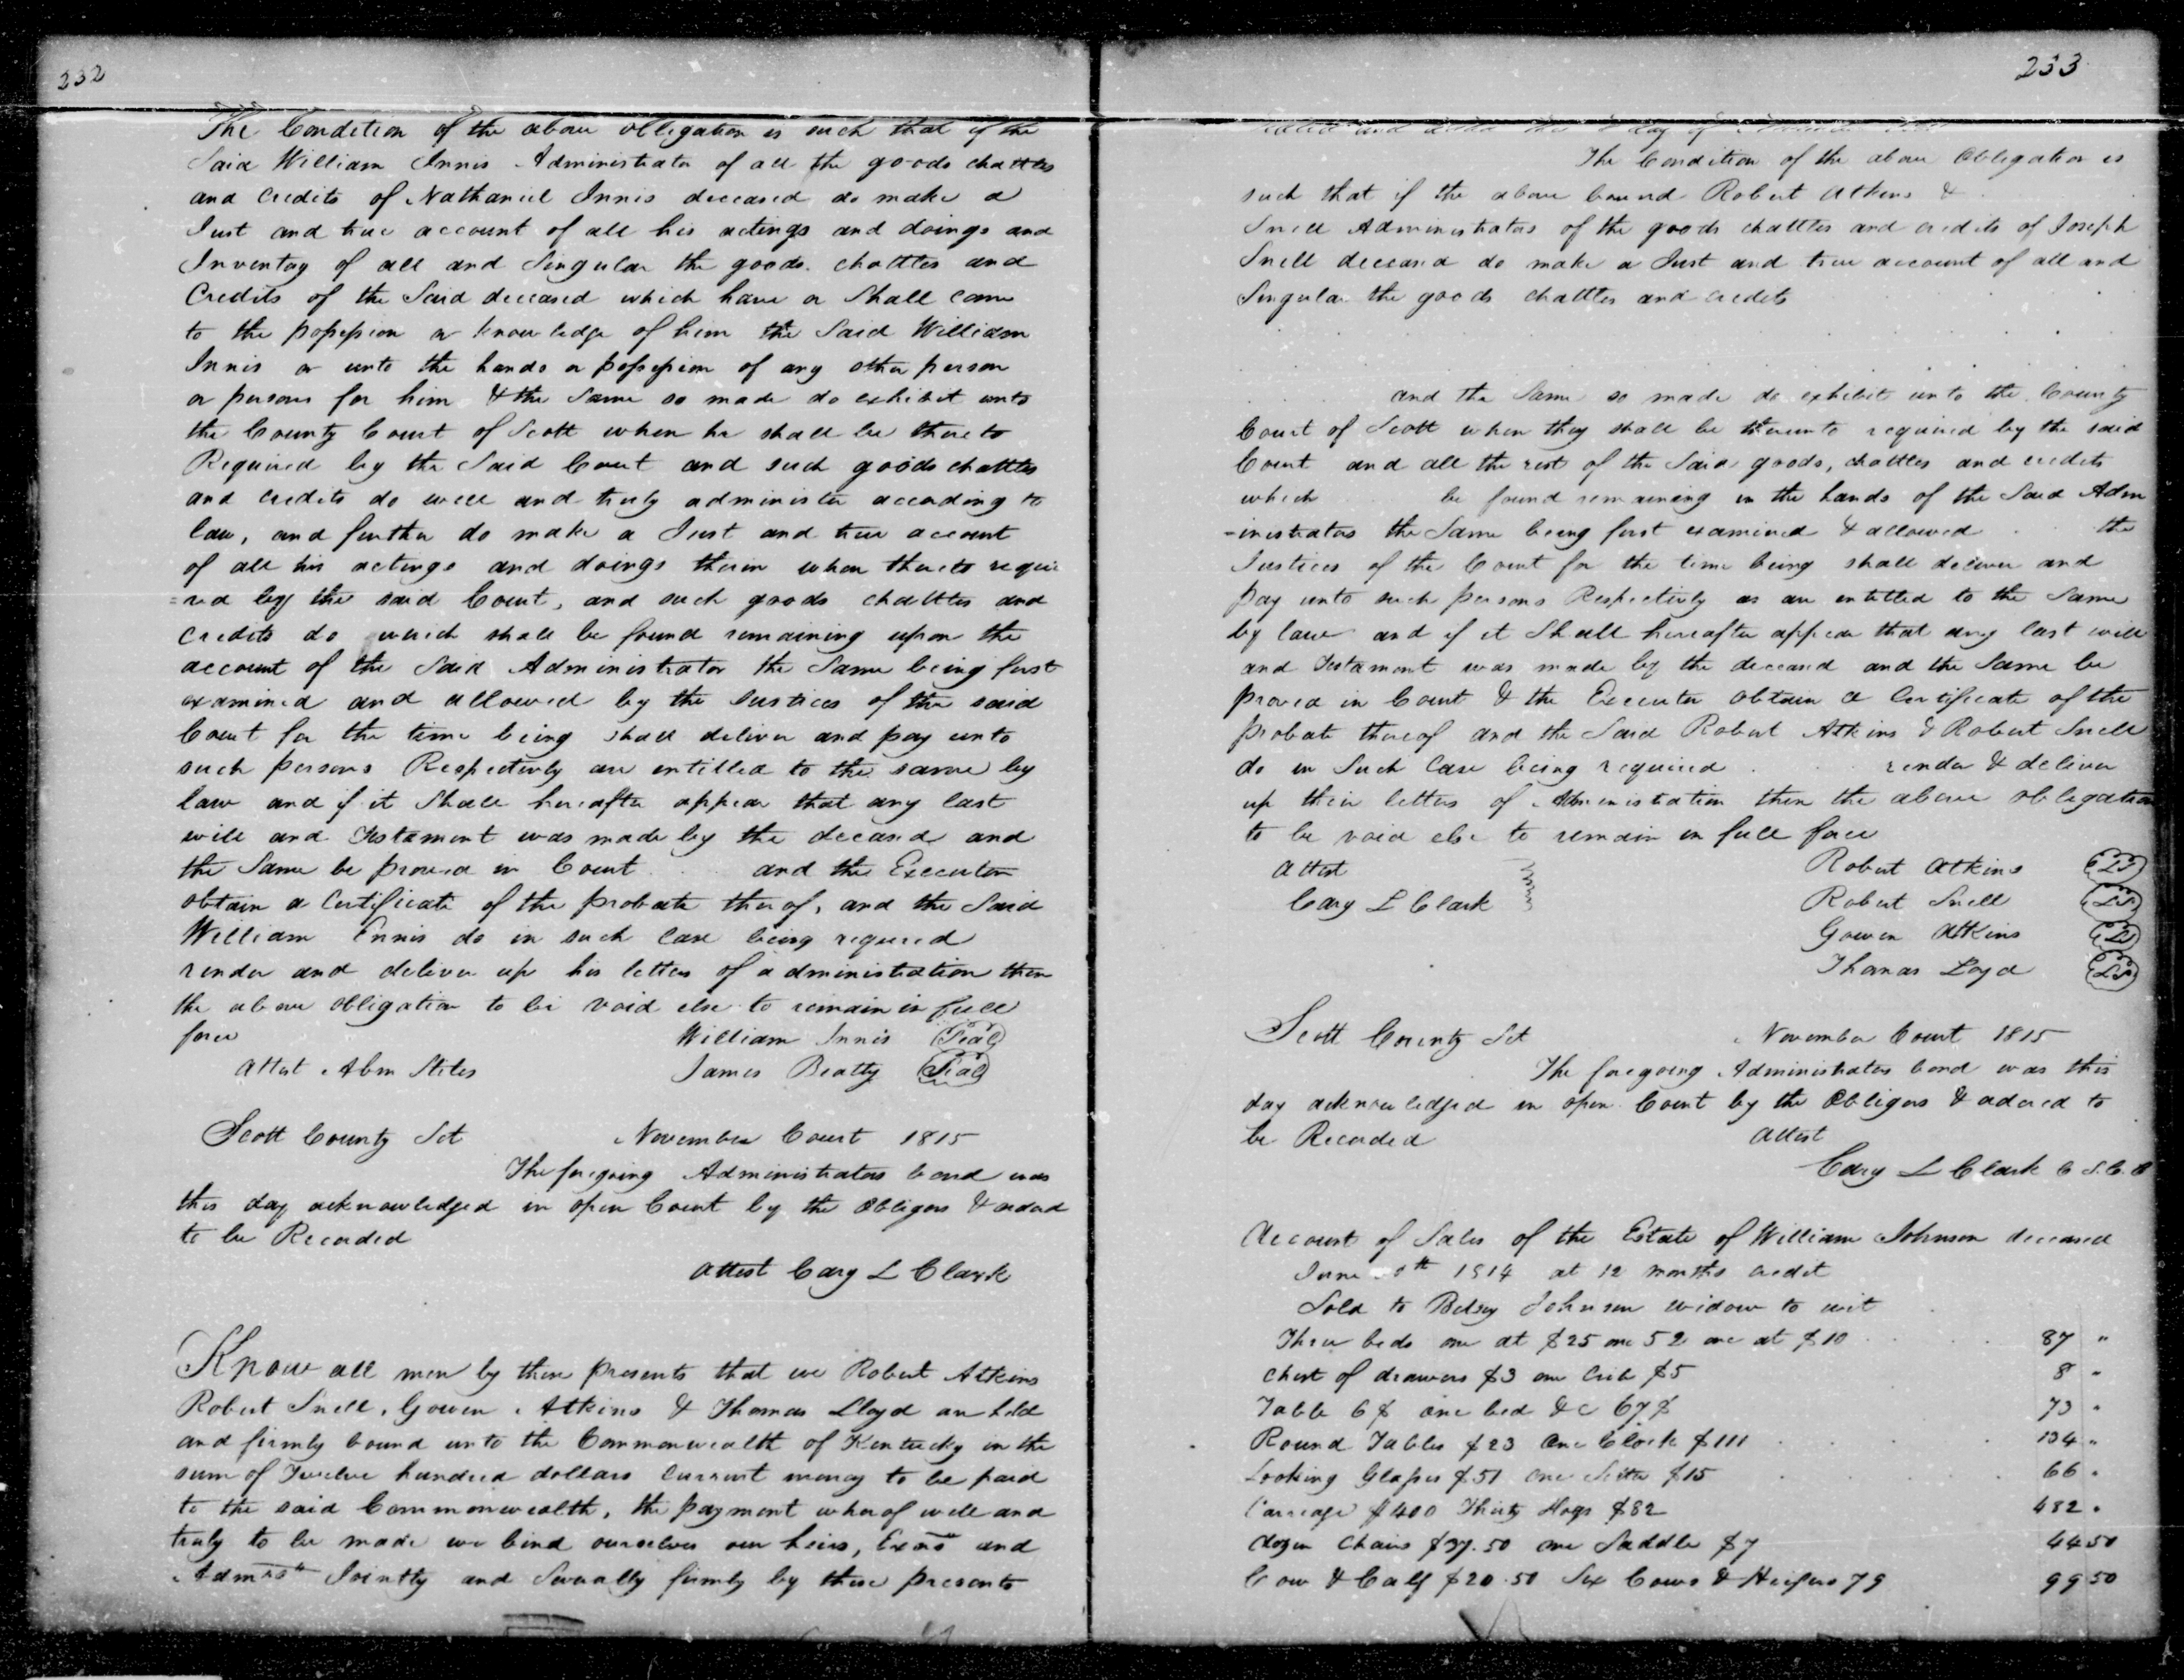 232
The Condition of the above obligation is such that if the
Said William Innis Administrator of all the goods chattles
and credits of Nathaniel Innis deceased do make a
Just and true account of all his actings and doings and
Inventoy of all and Singular the goods chattles and
Credits of the Said deceased which have or Shall come
to the possession or knowledge of him the Said William
Innis or unto the hands or possession of any other person
or persons for him & the Same so made do exhibit unto
the County Court of Scott when he shall be thereto
Required by the Said Court and such goods chattles
and credits do well and truly administer according to
law, and further do make a Just and true account
of all his actings and doings therein when thereto requi
=red by the said Court, and such goods chattles and
credits do which shall be found remaining upon the
account of the Said Administrator the Same being first
examined and allowed by the Justices of the said
Court for the time being shall deliver and pay unto
such persons Respectively are entitled to the same by
law and if it Shall hereafter appear that any last
will and Testament was made by the deceased and
the Same be proved in Court and the Executor
obtain a Certificate of the probate thereof, and the Said
William Innis do in such case being required
render and deliver up his letters of administration then
the above obligation to be void else to remain in full
force William Innis Seal
Attest Abm Stites James Beatty Seal
Scott County Sct November Court 1815
The foregoing Administrators bond was
this day acknowledged in open Court by the Obligors & ordered
to be Recorded
Attest Cary L Clark
Know all men by these presents that we Robert Atkins
Robert Snell, Gowen Atkins & Thomas Lloyd are held
and firmly bound unto the Commonwealth of Kentucky in the
sum of Twelve hundred dollars Current money to be paid
to the said Commonwealth, the payment whereof well and
truly to be made we bind ourselves our heirs, Exors and
Admrs Jointly and Severally firmly by these presents
233
day of
The Condition of the above Obligation is
such that if the above bound Robert Atkins &
Snell Administrators of the goods chattles and credits of Joseph
Snell deceased do make a Just and true account of all and
Singular the goods chattles and credits
and the Same so made do exhibit unto the County
Court of Scott when they shall be thereunto required by the said
Court and all the rest of the Said goods, chattles and credits
which be found remaining in the hands of the Said Adm
=inistrators the Same being first examined & allowed the
Justices of the Court for the time being shall deliver and
pay unto such persons Respectively as are entitled to the Same
by law and if it Shall hereafter appear that any last will
and Testament was made by the deceased and the Same be
proved in Court & the Executor obtain a Certificate of the
probate thereof and the Said Robert Atkins & Robert Snell
do in Such Case being required render & deliver
up their letters of Administration then the above obligation
to be void else to remain in full force
Attest Robert Atkins LS
Cary L Clark Robert Snell LS
Gowen Atkins LS
Thomas Loyd LS
Scott County Sct November Court 1815
The foregoing Administrators bond was this
day acknowledged in open Court by the Obligors & ordered to
be Recorded Attest
Cary L Clark C S.C.C
Account of Sales of the Estate of William Johnson deceased
June th 1814 at 12 months credit
Sold to Betsey Johnson widow to wit
Three beds one at $25 one 52 one at $10 87 "
Chest of drawers $3 one Crib $5 8 "
Table 6$ one bed &c 67$ 73 "
Round Tables $23 One Clock $111 134 "
Looking Glasses $51 one Settee $15 66 "
Carriage $400 Thirty Hogs $82 482 "
dozen Chairs $37.50 one Saddle $7 44 50
Cow & Calf $20.50 Six Cows & Heifers 79 99 50